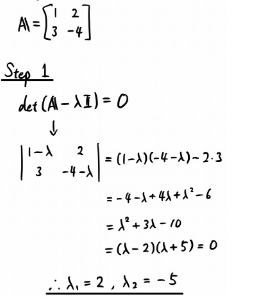 A = [1 2
3 -4]
Step 1
det (A - λI) = 0
↓
|1-λ 2
3 -4-λ| = (1-λ)(-4-λ) - 2·3
= -4 - λ + 4λ + λ² - 6
= λ² + 3λ - 10
= (λ - 2)(λ + 5) = 0
∴ λ₁ = 2 , λ₂ = -5